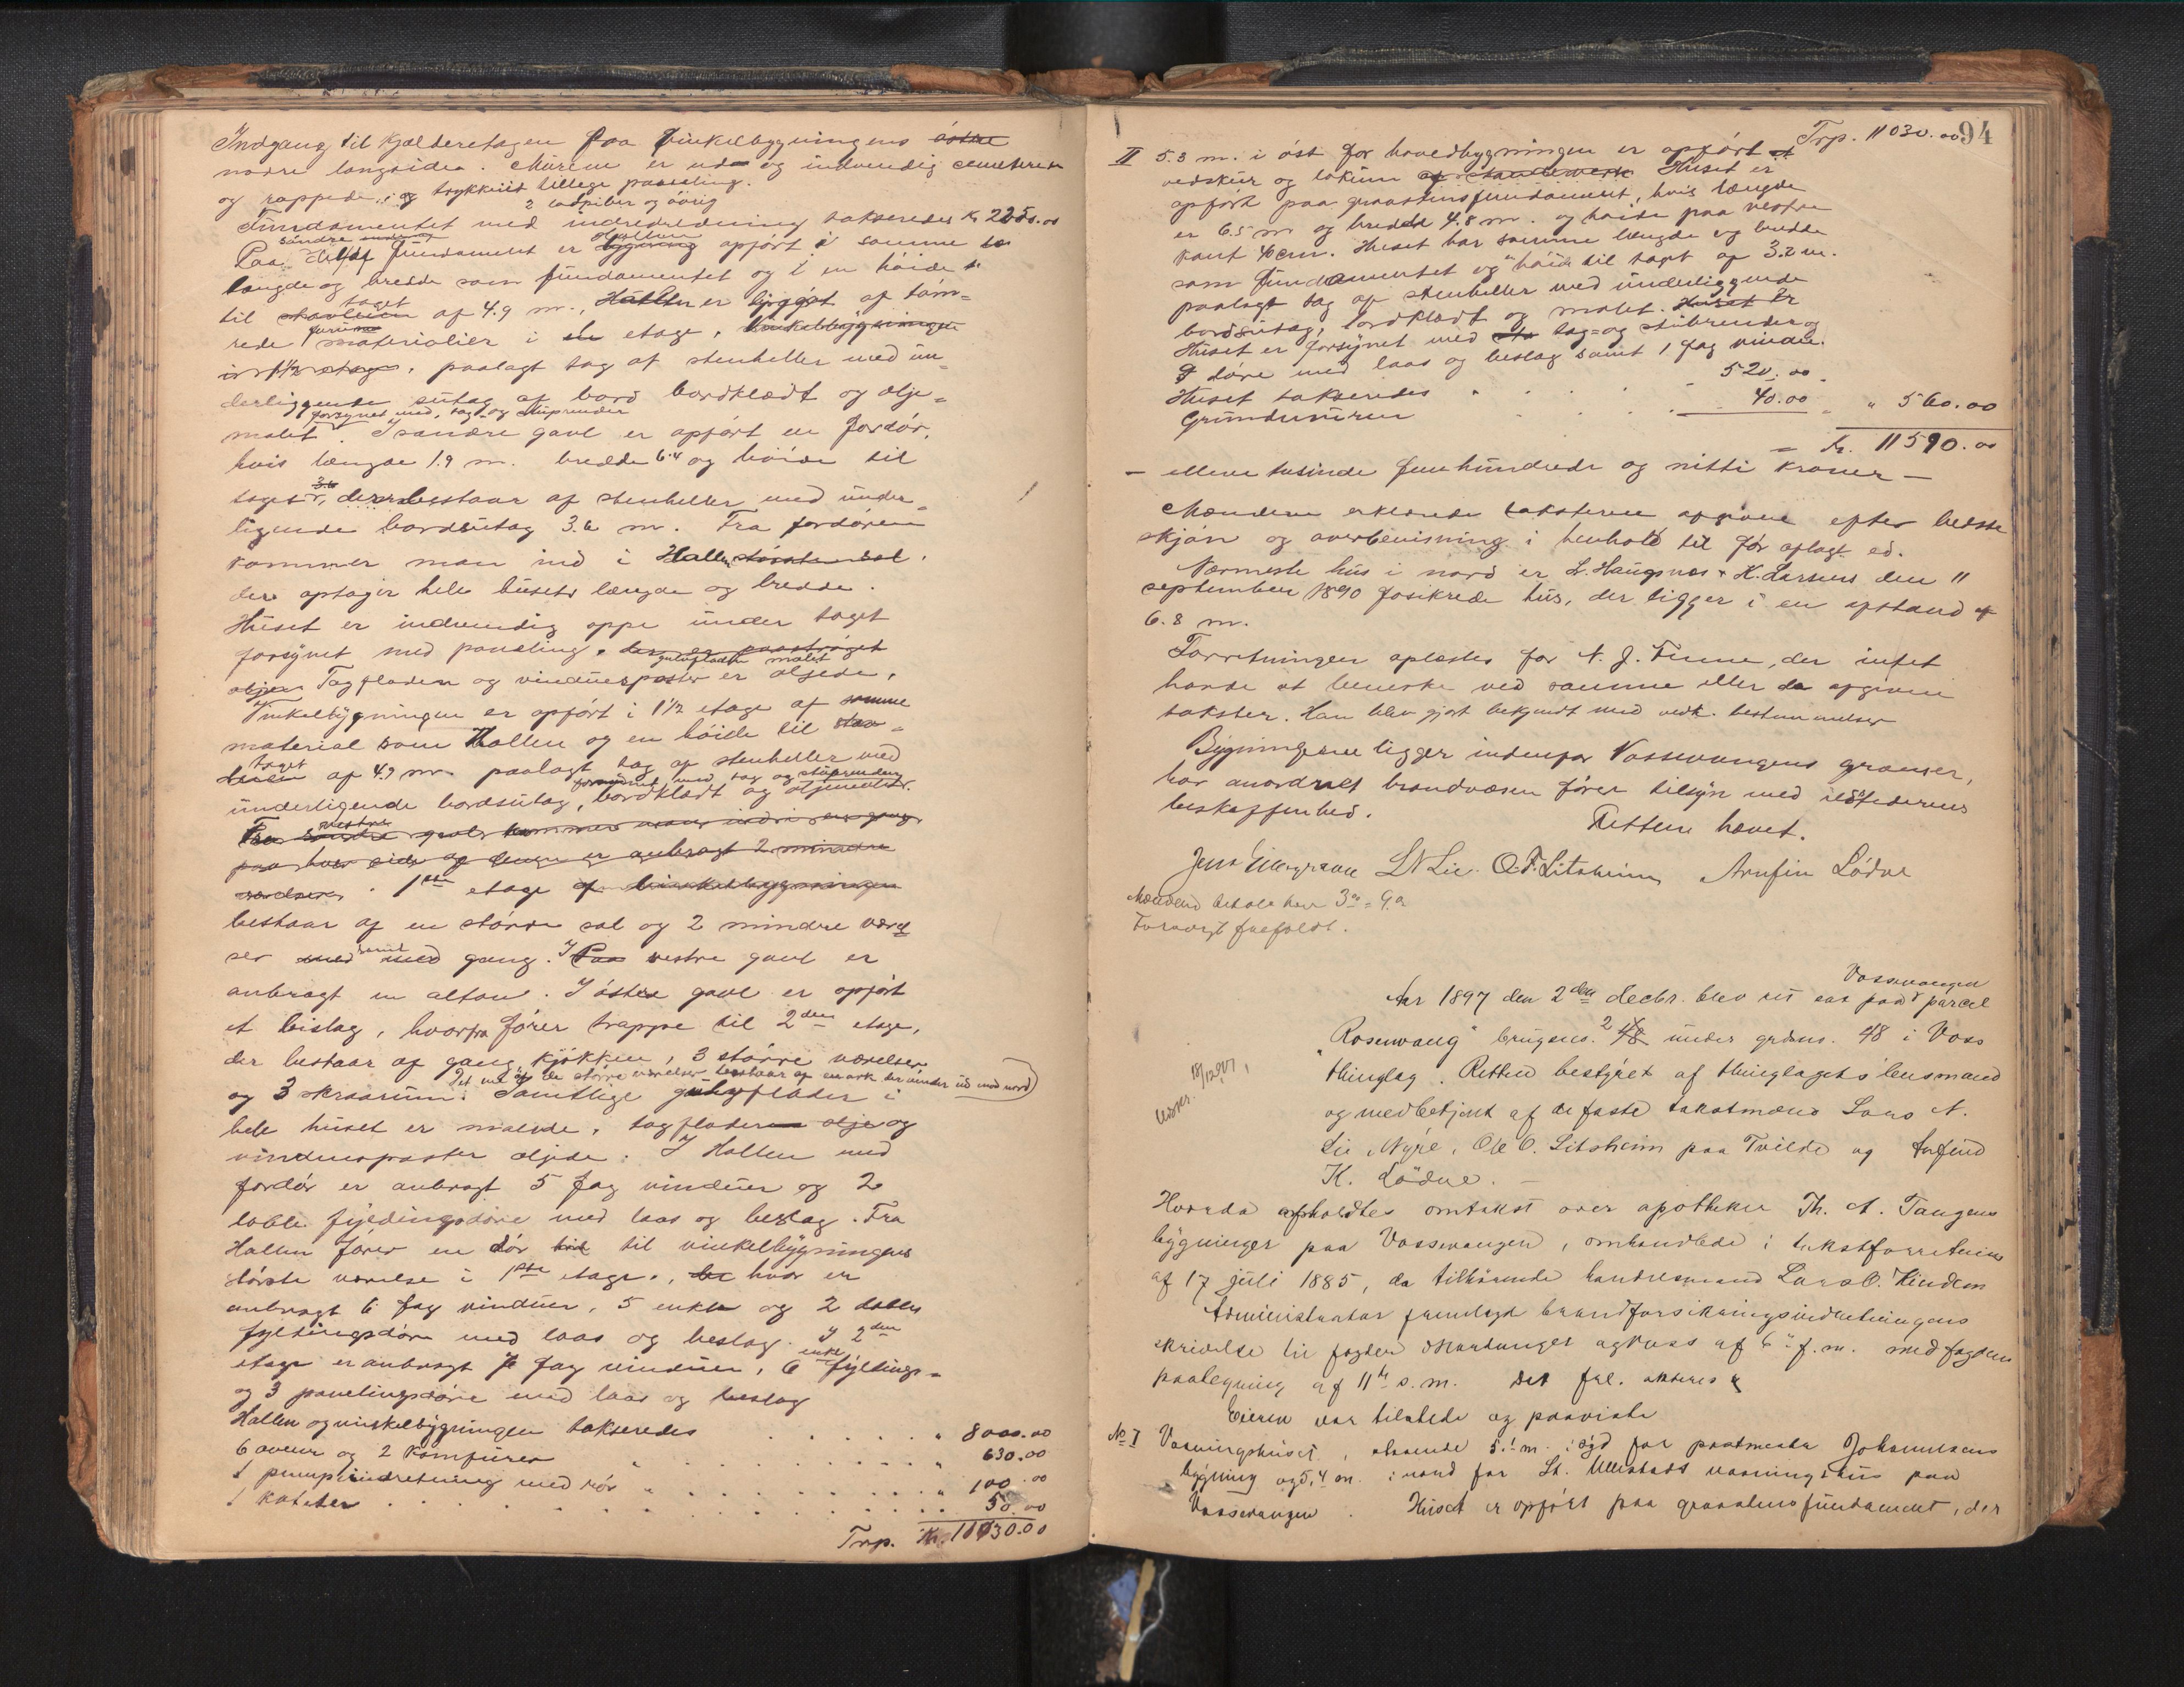 Indgang til Kjælderetagen paa vinkelbygningens østre
nordre langside. Murene er ud- og indvendig cementeret
og rappede, og trykkuis tillige paneling.
2 ladpiber og øvrig
Fundamentet med indredeledning takseredes Kr 2250.00
søndre Hallen
Paa del af fundamentet er bygning opført i samme
længde og bredde som fundamentet og i en høide
taget
til skavlen af 4.9 m., Hallen er bygget af tøm-
rede furu materialier i en etage, vinkelbygningen
i 1½ etage, paalagt tag af stenheller med un-
derliggende sutag af bord bordklædt og olje-
forsynet med tag og stuprender
malet. I søndre gavl er opført en fordør,
hvis længde 1.9 m. bredde 6.4 og høide til
3.6
taget, der bestaar af stenheller med under-
ligende bordsutag 3.6 m. Fra fordøren
kommer man ind i Hallen største sal,
der optager hele husets længde og bredde.
Huset er indvendig oppe under taget
forsynet med paneling, der er paastrøget
gulvfladen malet
oljen Tagfladen og vinduesposter er oljede.
Vinkelbygningen er opført i 1½ etage af samme
material som Hallen og en høide til stav-
taget
leien af 4.9 m. paalagt tag af stenheller med
forsynet med tag og stuprender
underligende bordsutag, bordklædt og oljemalet.
vestre
Fra søndre gavl kommer man ind i en gang
paa hver side af denne er anbragt 2 mindre
værelser. 1ste etage af vinkelbygningen
bestaar af en større sal og 2 mindre værel
samt
ser med med gang. I Paa vestre gavl er
anbragt en altan. I østre gavl er opført
et bislag, hvorfra fører trappe til 2den etage,
der bestaar af gang, kjøkken, 3 større værelser
Det ene af de større værelser bestaar af en ark der vender ud mod nord
og 3 skraarum. Samtlige gulvflader i
hele huset er malede, tagfladerne olje og
vinduesposter oljede. I Hallen med
fordør er anbragt 5 fag vinduer og 2
doble fyldingsdøre med laas og beslag. Fra
Hallen fører en dør til til vinkelbygningens
største værelse i 1ste etage, hvor er
anbragt 6 fag vinduer, 5 enkle og 2 doble
fyldingsdøre med laas og beslag. I 2den
enkl
etage er anbragt 7 fag vinduer, 6 fyldings-
og 3 panelingsdøre med laas og beslag
Hallen og vinkelbygningen takseredes " 8000.00
6 ovner og 2 Komfurer " " 630.00
1 pumpeindretning med rør " " 100.00
1 kateter 50.00
Trp. Kr. 11030.00
94
Trp. 11030.00
II 5.3 m. i øst for hovedbygningen er opført et
vedskur og lokum af standerverk Huset er
opført paa graastensfundament, hvis længde
er 6.5 m og bredde 4.8 m. og høide paa vestre
kant 40 cm. Huset har samme længde og bredde
som fundamentet og høide til tagt af 3.2 m.
paalagt tag af stenheller med underliggende
bordsutag, bordklædt og malet. Huset er
Huset er forsynet med tag- og stuprender og
døre med laas og beslag samt 1 fag vindue.
Huset takseredes " 520.00
Grundmuren 40.00 " 560.00
Kr. 11590.00
– elleve tusinde fem hundrede og nitti Kroner –
Mændene erklærede taksterne afgivne efter bedste
skjøn og overbevisning i henhold til før aflagt ed.
Nærmeste hus i nord er L. Haugnæs & K. Larsens den 11
september 1890 fosikrede hus, der ligger i en afstand af
6.8 m.
Forretningen oplæstes for N. J. Finne, der intet
havde at bemerke ved samme eller de afgivne
takster. Han blev gjort bekjendt med vedk. bestemmelser
Bygningerne ligger indenfor Vossevangens grænser,
har anordnet brandvæsen fører tilsyn med ildstedernes
beskaffenhed.
Retten hævet.
L N Lie. O. F. Litsheim Arnfin Lödve
Mændene betalt hver 3.00 = 9.00
Forøvrigt frafaldt.
Vossevangen
Aar 1897 den 2den decbr. blev ret sat paa parcel
"Rosenvang" brugsno. 2 48 under grdsno. 48 i Voss
thinglag. Retten bestyret af thinglagets lensmand
og medbetjent af de faste takstmænd Lars N.
Lie Nyre, Ole O. Litsheim paa Tvilde og Anfind
K. Lödve. –
18/12 97
Udskr.
Hvorda afholdtes omtakst over apotheker Th. A. Tangens
bygninger paa Vossevangen, omhandlede i takstforretning
af 17 juli 1885, da tilhørende handelsmand Lars O. Kindem
Administrator fremlagde brandforsikringsindretningens
skrivelse til fogden i Hardanger og Voss af 6te f.m. med fogdens
paategning af 11te s.m. Det frl. akteres
Eieren var tilstede og paaviste
No I Vaaningshuset, staaende 5.1 m. i syd for postmester Johannesens
bygning og 5,4 m. i nord for L. Ullestads vaaningshus paa
Vossevangen. Huset er opført paa graastensfundament, der